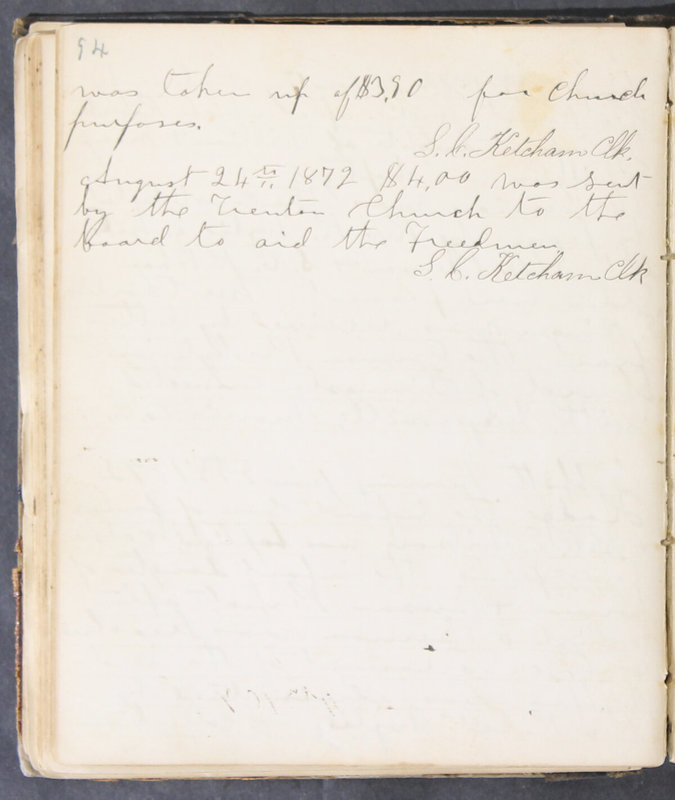 94
was taken up of $3,90 for Church
purposes.
S. C. Ketcham Clk.
August 24th 1872 $4,00 was sent
by the Trenton Church to the
board to aid the Freedmen.
S. C. Ketcham Clk